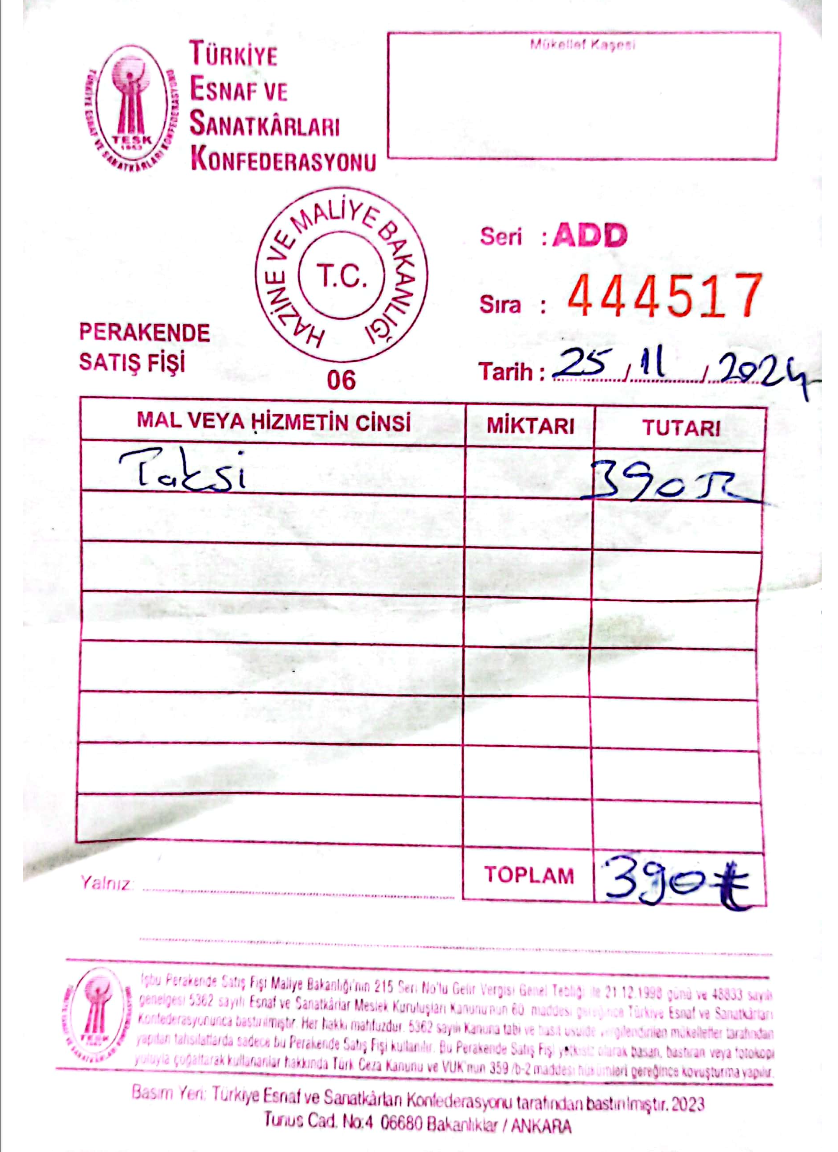 Mükellef Kaşesi
TÜRKİYE
ESNAF VE
SANATKÂRLARI
KONFEDERASYONU
TESK
TÜRKİYE ESNAF VE SANATKÂRLARI KONFEDERASYONU
HAZİNE VE MALİYE BAKANLIĞI
T.C.
06
PERAKENDE
SATIŞ FİŞİ
Seri : ADD
Sıra : 444517
Tarih : 25 / 11 / 2024
MAL VEYA HİZMETİN CİNSİ MİKTARI TUTARI
Taksi 390 TL
Yalnız: TOPLAM 390 ₺
İşbu Perakende Satış Fişi Maliye Bakanlığı'nın 215 Seri No'lu Gelir Vergisi Genel Tebliği ile 21.12.1998 günü ve 48833 sayılı
genelgesi 5362 sayılı Esnaf ve Sanatkârlar Meslek Kuruluşları Kanunu'nun 60. maddesi gereğince Türkiye Esnaf ve Sanatkârları
Konfederasyonunca bastırılmıştır. Her hakkı mahfuzdur. 5362 sayılı Kanuna tabi ve basit usulde vergilendirilen mükellefler tarafından
yapılan tahsilatlarda sadece bu Perakende Satış Fişi kullanılır. Bu Perakende Satış Fişi yetkisiz olarak basan, bastıran veya fotokopi
yoluyla çoğaltarak kullananlar hakkında Türk Ceza Kanunu ve VUK'nun 359/b-2 maddesi hükümleri gereğince kovuşturma yapılır.
TESK
Basım Yeri: Türkiye Esnaf ve Sanatkârları Konfederasyonu tarafından bastırılmıştır. 2023
Tunus Cad. No:4 06680 Bakanlıklar / ANKARA